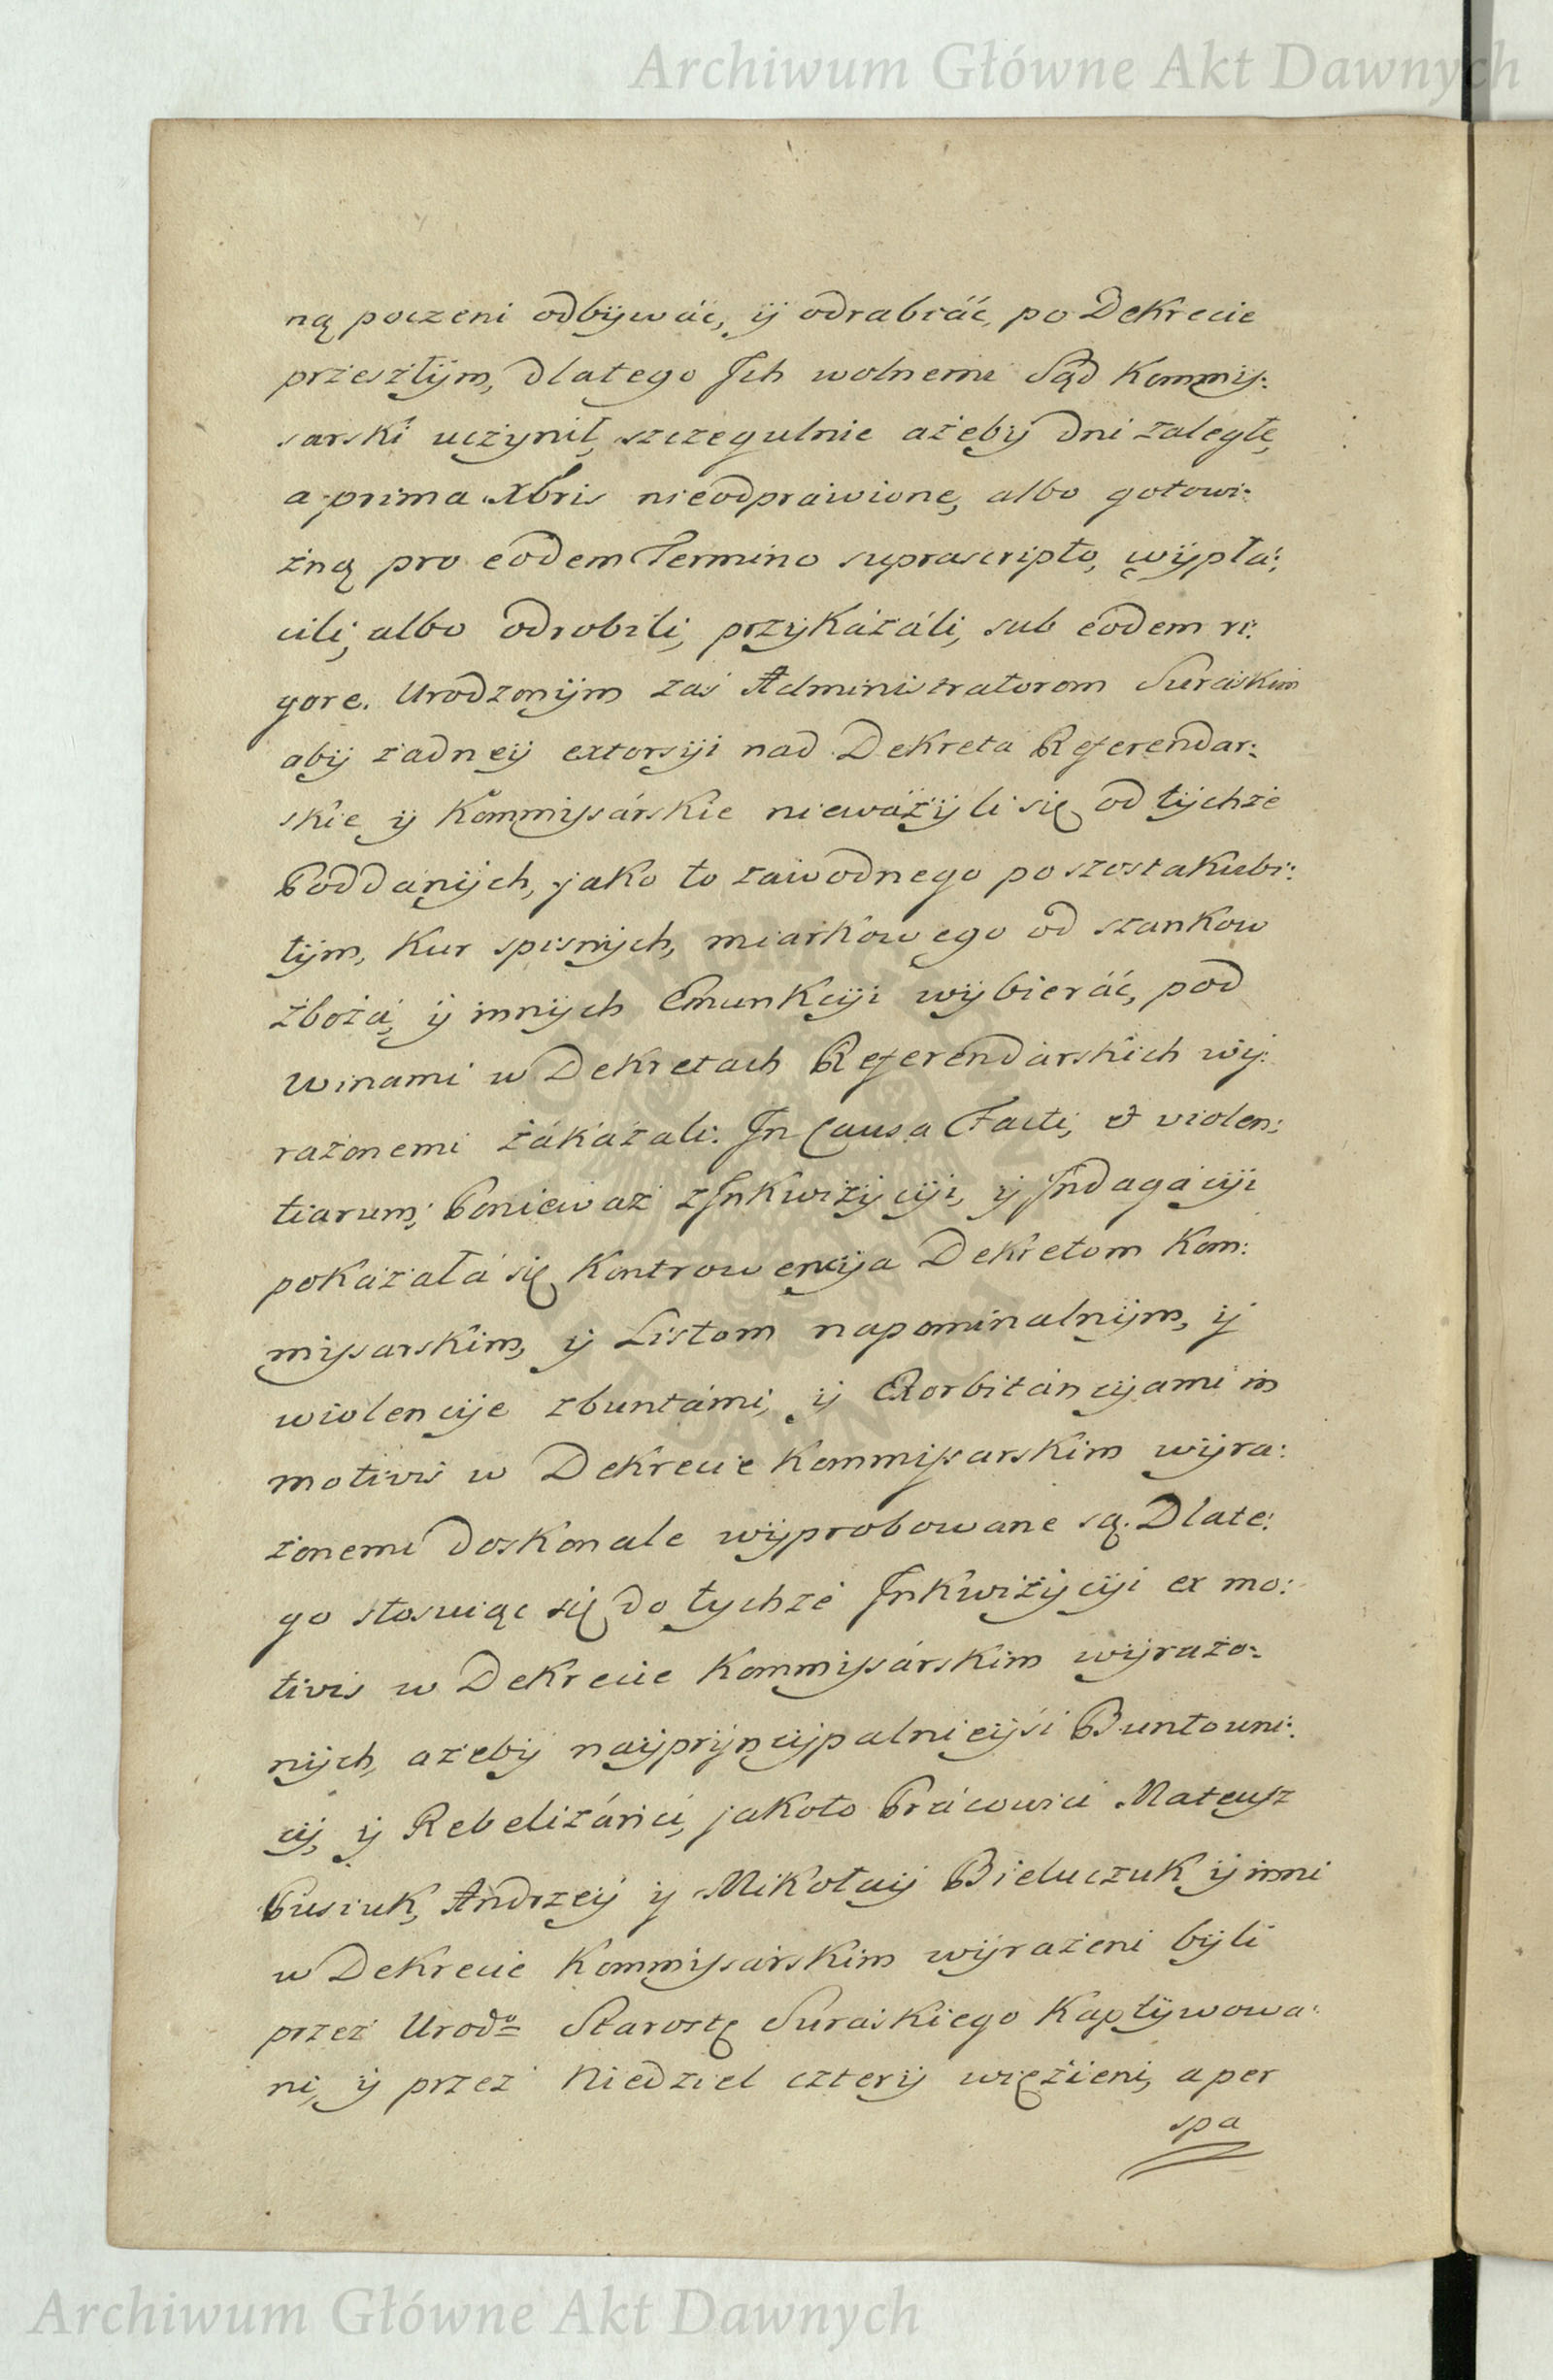 Archiwum Główne Akt Dawnych
ną poczeni odbÿwáć, ÿ odrabráć, po Dekrecie
przeszłÿm, dlatego Jch wolnemi Sąd Kommis:
sarski uczÿnił, szczegulnie ażebÿ dni zaległe,
a prima Xbris nieodprawione, albo gotowi:
zną pro eodem Termino suprascripto, wÿpła:
cili, albo odrobili, przÿkázáli, sub eodem ri:
gore. Urodzonÿm zaś Administratorom Suraskim
abÿ żadneÿ extorsÿi nad Dekreta Referendar:
skie ÿ Kommissárskie nieważÿli się od tÿchże
Poddanÿch, jako to zawodnego po szostakubi:
tÿm, Kur spisnÿch, miarkowego od szankow
zboża, ÿ innÿch Emunkcÿi wÿbieráć, pod
winami w Dekretach Referendarskich wÿ:
rażonemi zákázali. Jn Causa Facti, et violen:
tiarum; Ponieważ z Jnkwizÿcÿi, ÿ Jndagacÿi
pokazałá się Kontrowencÿa Dekretom Kom:
missarskim, ÿ Listom napominalnÿm, ÿ
wiolencÿe zbuntámi, ÿ Exorbitáncÿami in
motivis w Dekrecie Kommissarskim wÿra:
żonemi doskonale wÿprobowane są. Dlate:
go stosuiąc się do tychże Jnkwizÿcÿi ex mo:
tivis w Dekrecie Kommissárskim wÿrażo:
nÿch, ażebÿ naÿprÿncÿpalnieÿśi Buntowni:
cÿ, ÿ Rebelizánci, jakoto Prácowici Mateusz
Pusiuk, Andrzeÿ ÿ Mikołaÿ Bieluczuk ÿ inni
w Dekrecie Kommissarskim wÿrażeni bÿli
przez Urodo Starostę Suraskiego Kaptÿwowa:
ni, ÿ przez Niedziel czterÿ więzieni, a per
spa
Archiwum Główne Akt Dawnych